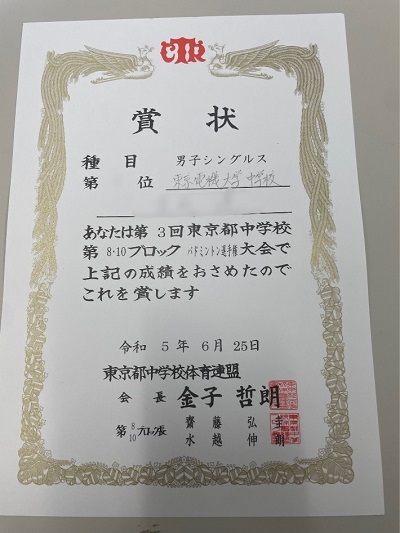 賞状
種目 男子シングルス
第 位 東京電機大学中学校
あなたは第3回東京都中学校
第8・10ブロックバドミントン選手権大会で
上記の成績をおさめたので
これを賞します
令和5年6月25日
東京都中学校体育連盟
会長 金子哲朗
第8/10ブロック長 齋藤弘幸
水越伸明